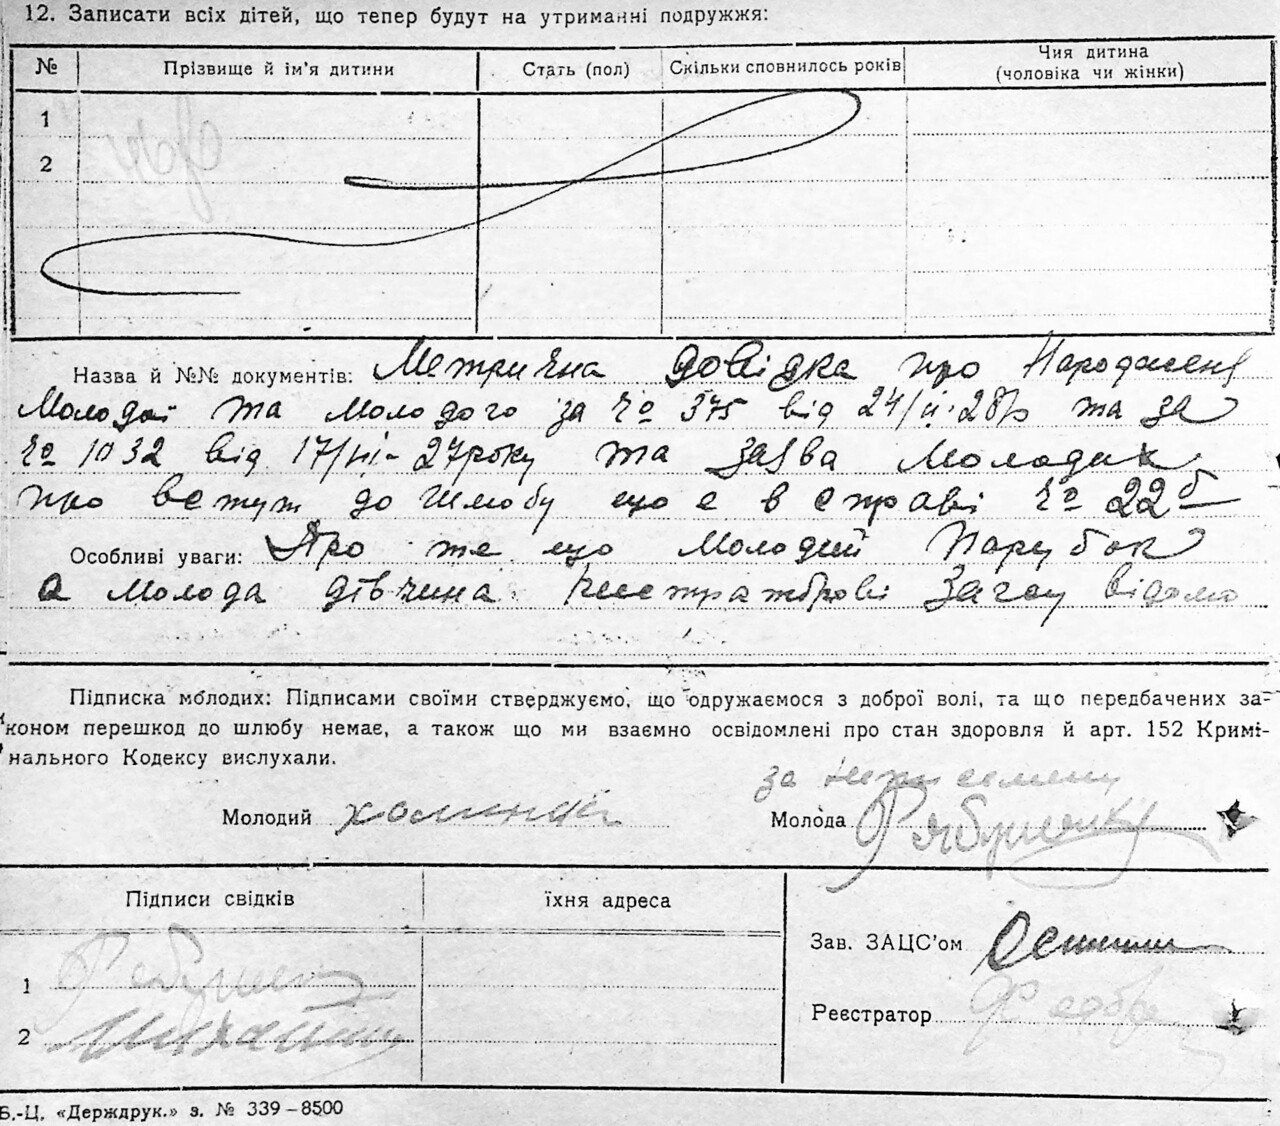 12. Записати всіх дітей, що тепер будут на утриманні подружжя:
№ Прізвище й ім'я дитини Стать (пол) Скільки сповнилось років Чия дитина (чоловіка чи жінки)
1
2
Назва й №№ документів: Метрична довідка про Народженя
Молодої та молодого за № 375 від 24/II-28р та за
№ 1032 від 17/III-27року та заява молодих
про вступ до шлюбу що є в справі № 22б
Особливі уваги: Про те що молодий Парубок
а молода дівчина Реєстраторові Загсу відомо
Підписка молодих: Підписами своїми стверджуємо, що одружаємося з доброї волі, та що передбачених за-
коном перешкод до шлюбу немає, а також що ми взаємно освідомлені про стан здоровля й арт. 152 Кримі-
нального Кодексу вислухали.
за неписьмену
Молодий Молода
Підписи свідків їхня адреса
Зав. ЗАЦС'ом
1
Реєстратор
2
Б.-Ц. «Держдрук.» з. № 339–8500